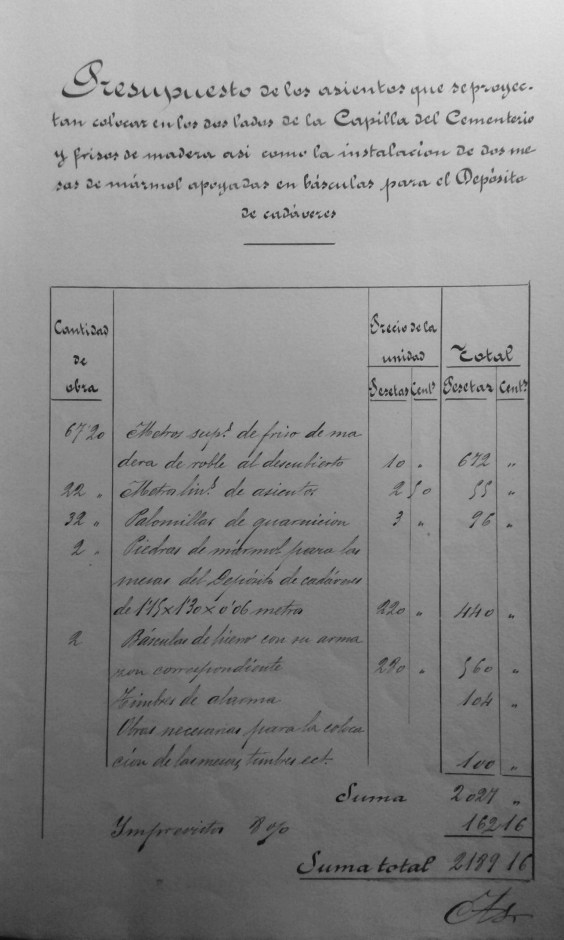 Presupuesto de los asientos que se proyec-
tan colocar en los dos lados de la Capilla del Cementerio
y frisos de madera asi como la instalación de dos me
sas de mármol apoyadas en básculas para el Depósito
de cadáveres
Cantidad de obra
Precio de la unidad
Total
Pesetas Cent.s Pesetas Cent.s
67'20 Metros sup.s de friso de ma
dera de roble al descubierto 10 " 672 "
22 " Metro lin.s de asientos 2 50 55 "
32 " Palomillas de guarnicion 3 " 96 "
2 " Piedras de mármol para las
mesas del Depósito de cadáveres
de 1'75 x 1'30 x 0'06 metros 220 " 440 "
2 Básculas de hierro con su arma
zon correspondiente 280 " 560 "
Timbres de alarma 104 "
Obras necesarias para la coloca
ción de las mesas, timbres ect. 100 "
Suma 2027 "
Imprevistos 8 % 162 16
Suma total 2189 16